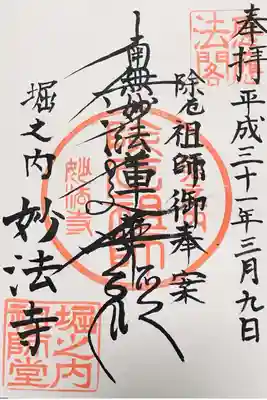 奉拝 平成三十一年三月九日
除厄祖師御奉案
南無妙法蓮華経
堀之内 妙法寺
法閣
妙法寺
堀之内
祖師堂